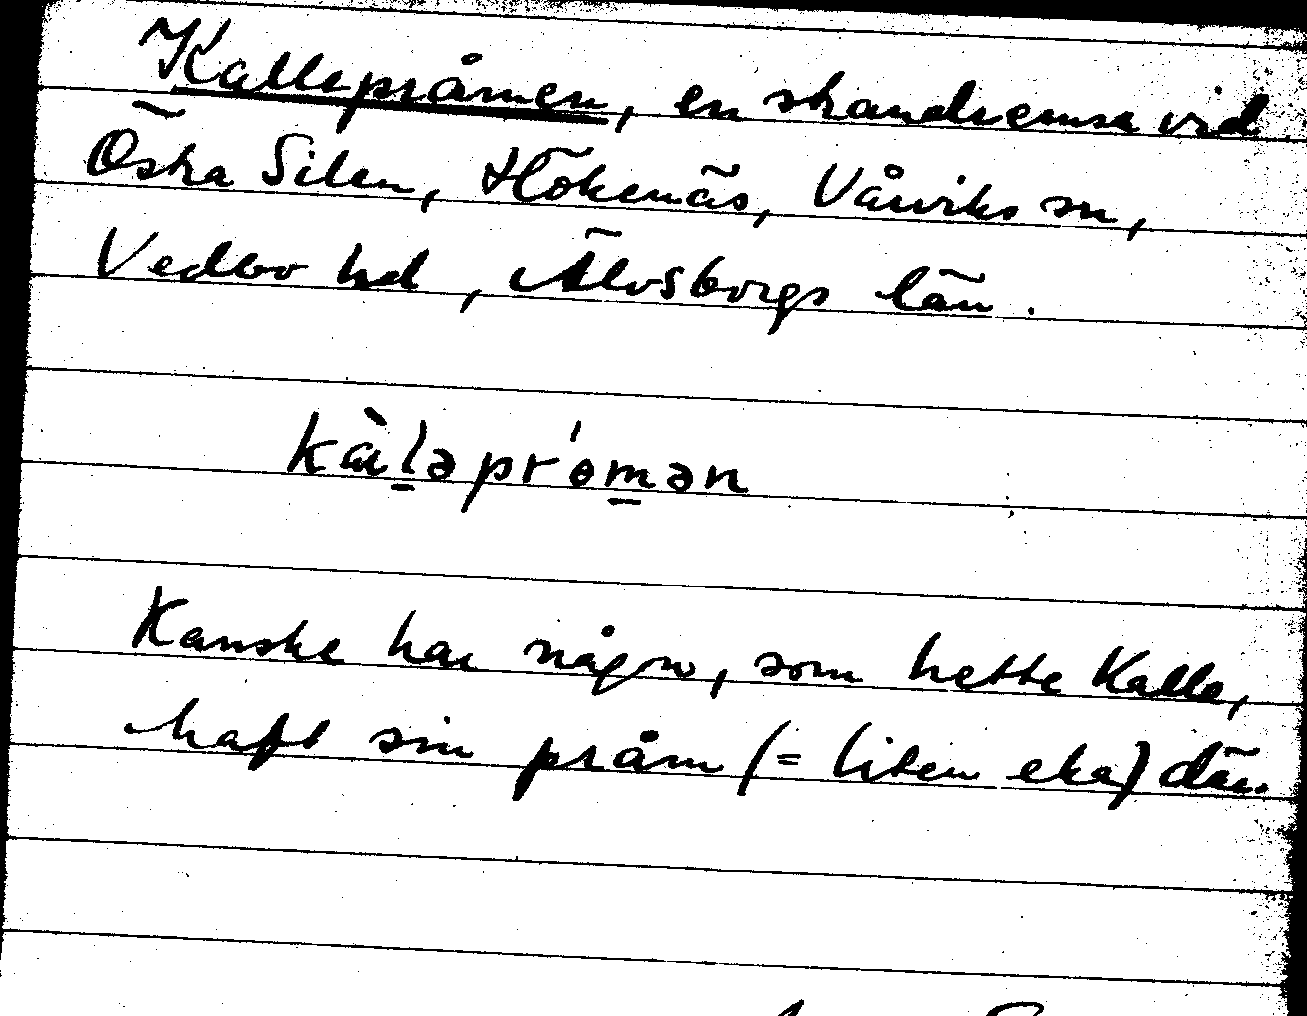 Kallepråmen, en strandremsa vid
Östra Silen, Hökenäs, Vårviks sn,
Vedbo hd, Älvsborgs län.
kàl̲əpr'óm̲ən
Kanske har någon, som hette Kalle,
haft sin pråm (= liten eka) där.